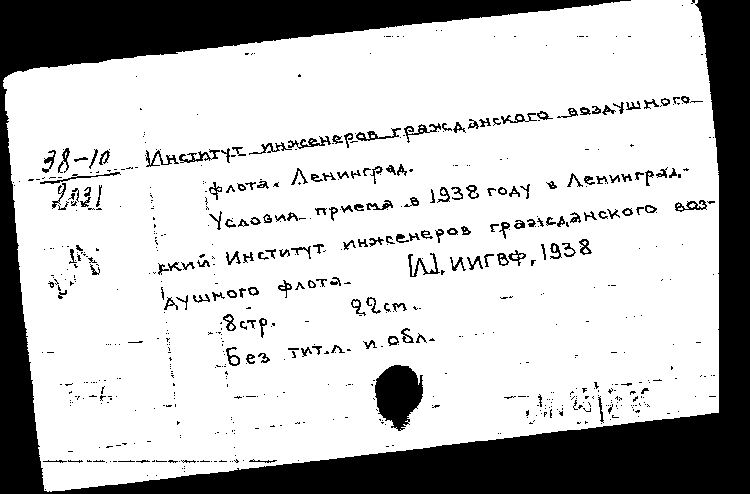 38-10
2031
Институт инженеров гражданского воздушного
флота. Ленинград.
Условия приема в 1938 году в Ленинград-
ский Институт инженеров гражданского воз-
душного флота. [Л.], ИИГВФ, 1938
8 стр. 22 см.
Без тит.л. и обл.